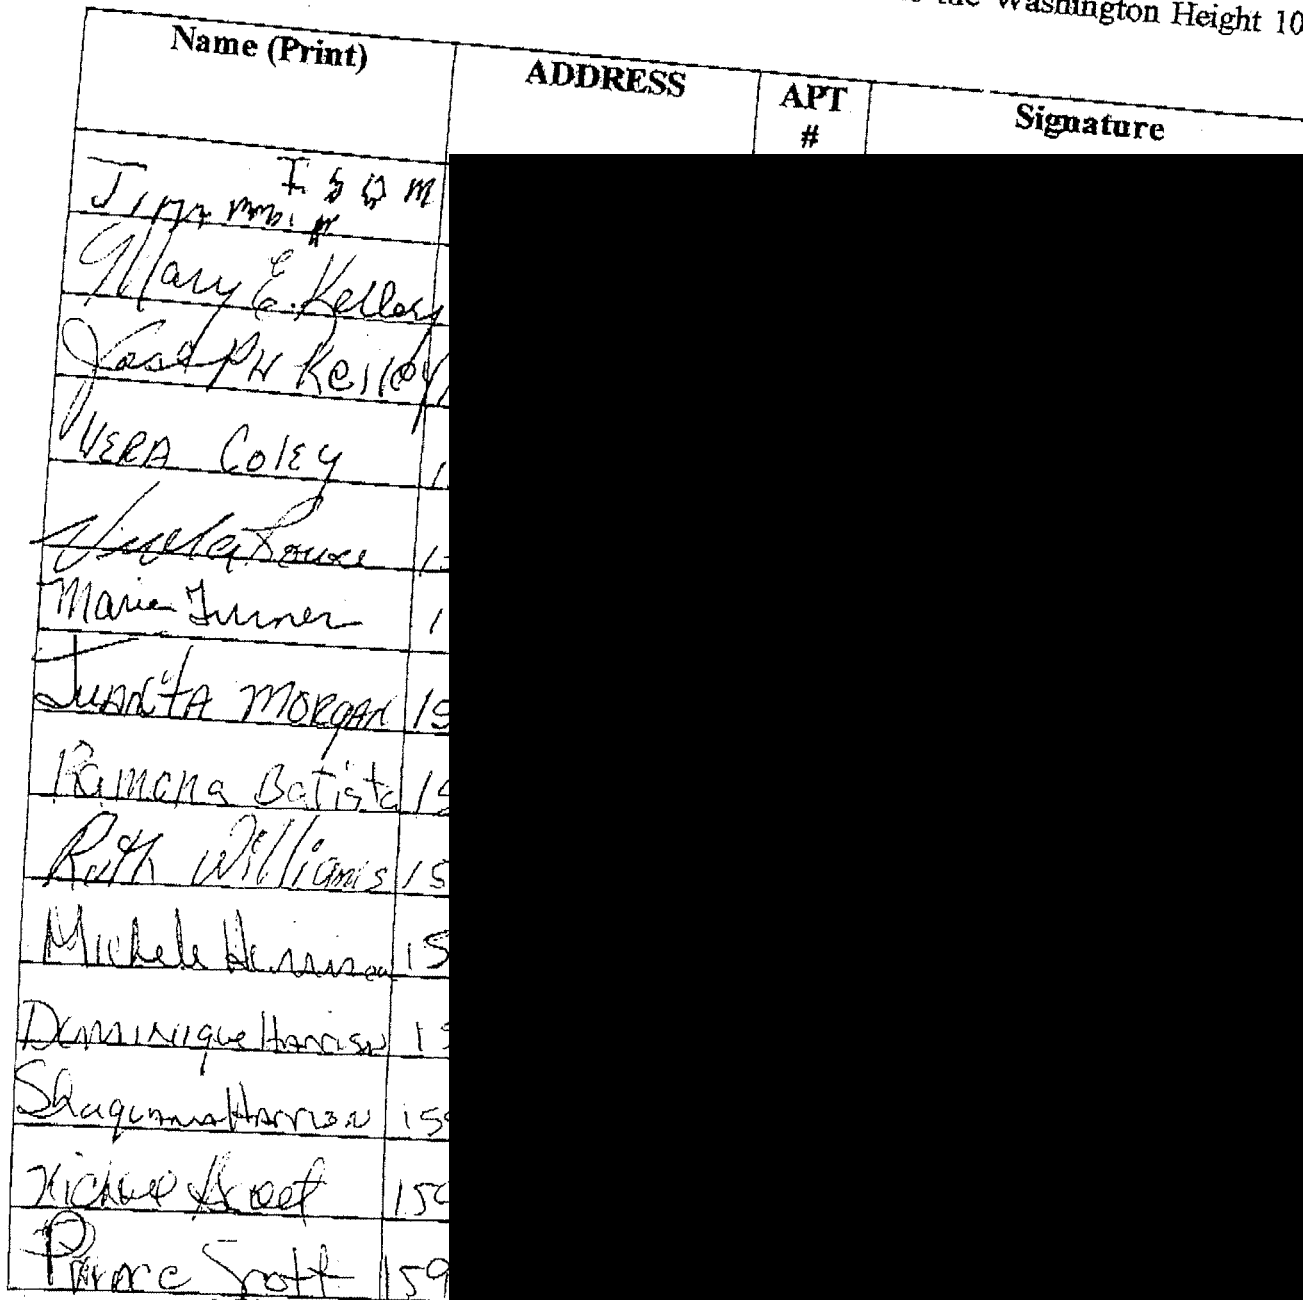 the Washington Height 10
Name (Print) ADDRESS APT # Signature
Mary E. Kelley
Joseph Kelley
VERA COLEY 1
1
Marie Turner 1
JUANITA MORGAN 15
Ramona Batista 15
Ruth Williams 15
Michele Harrison 15
Dominique Harrison 15
Harrison 159
159
Prince Scott 159